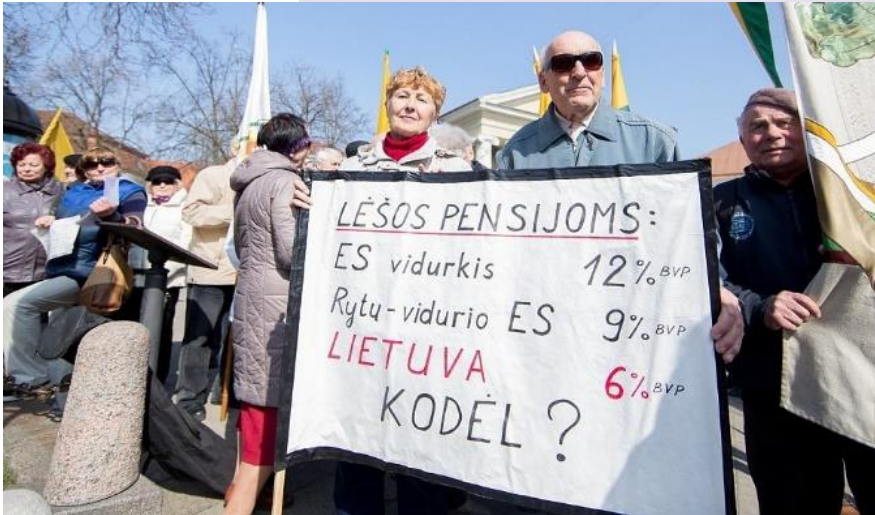 LĖŠOS PENSIJOMS:
ES vidurkis 12% BVP
Rytų-vidurio ES 9% BVP
LIETUVA 6% BVP
KODĖL?